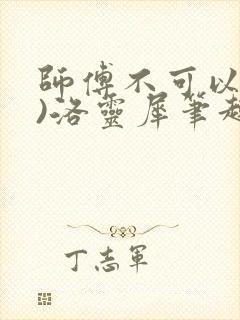 師傅不可以
)洛靈犀筆趣
丁志軍